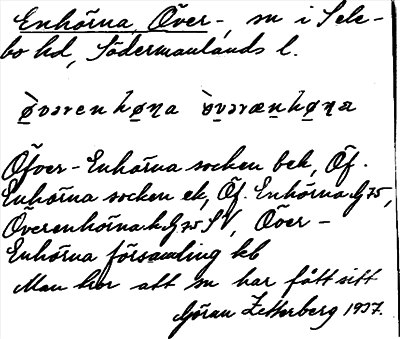 Enhörna, Över-, sn i Sele-
bo hd, Södermanlands l.
Öfver-Enhörna socken bek, Öf.
Enhörna socken ek, Öf. Enhörna G75,
Överenhörna k G75 SV, Över-
Enhörna församling kb
Man hör att sn har fått sitt
Göran Zetterberg 1937.